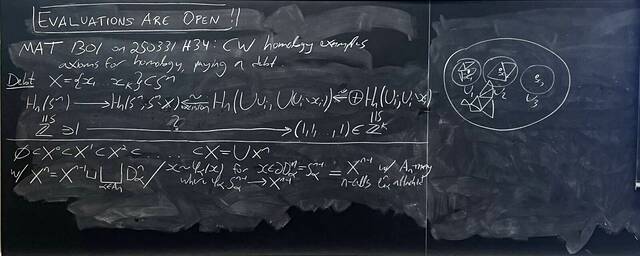 EVALUATIONS ARE OPEN!!
MAT 1301 on 250331 H34: CW homology examples
axioms for homology, paying a debt.
Debt X={x₁ … x_k}⊂Sⁿ
Hₙ(Sⁿ) ⟶ Hₙ(Sⁿ, Sⁿ\X) ⟵∼ excision Hₙ(⋃Uᵢ, ⋃Uᵢ\xᵢ) ⟵∼ ⊕Hₙ(Uᵢ, Uᵢ\xᵢ)
ℤ ∋ 1 ⟶ ? (1, 1, …, 1) ∈ ℤᵏ
∅ ⊂ X⁰ ⊂ X¹ ⊂ X² ⊂ … ⊂ X = ⋃Xⁿ
w/ Xⁿ = Xⁿ⁻¹ ⊔ ⨆_{α∈Aₙ} Dⁿ_α / x∼φ_α(x) for x∈∂Dⁿ_α=Sⁿ⁻¹_α = Xⁿ⁻¹ w/ Aₙ-many
where φ_α: Sⁿ⁻¹_α → Xⁿ⁻¹ n-cells eⁿ_α attached
U₁
U₂
U₃